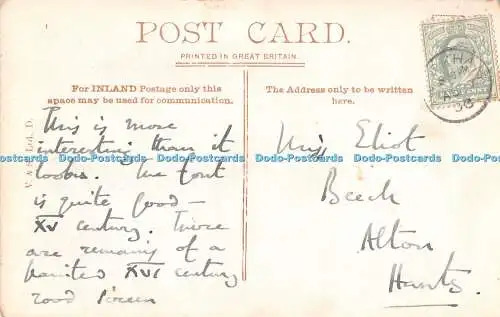 POST CARD.
PRINTED IN GREAT BRITAIN.
For INLAND Postage only this
space may be used for communication.
The Address only to be written
here.
This is more
interesting than it
looks. The font
is quite good –
XV century. There
are remains of a
painted XVI century
rood screen
Miss Eliot
Beech
Alton
Hants.
Dodo-Postcards Dodo-Postcards Dodo-Postcards Dodo-Postcards Dodo-Postcards